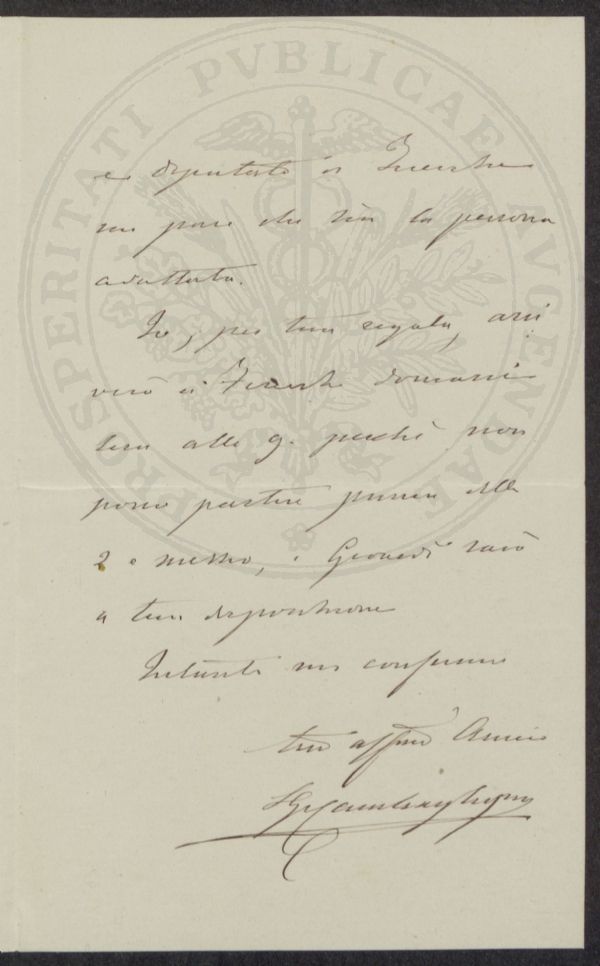 PROSPERITATI PVBLICAE AVGENDAE
e deputato di
mi pare che sia la persona
adattata.
Io, per tua regola, arri
verò a Firenze domani
sera alle 9. perchè non
posso partire prima delle
2 e mezzo, e Giovedì sarò
a tua disposizione
Intanto mi confermo
tuo affmo Amico